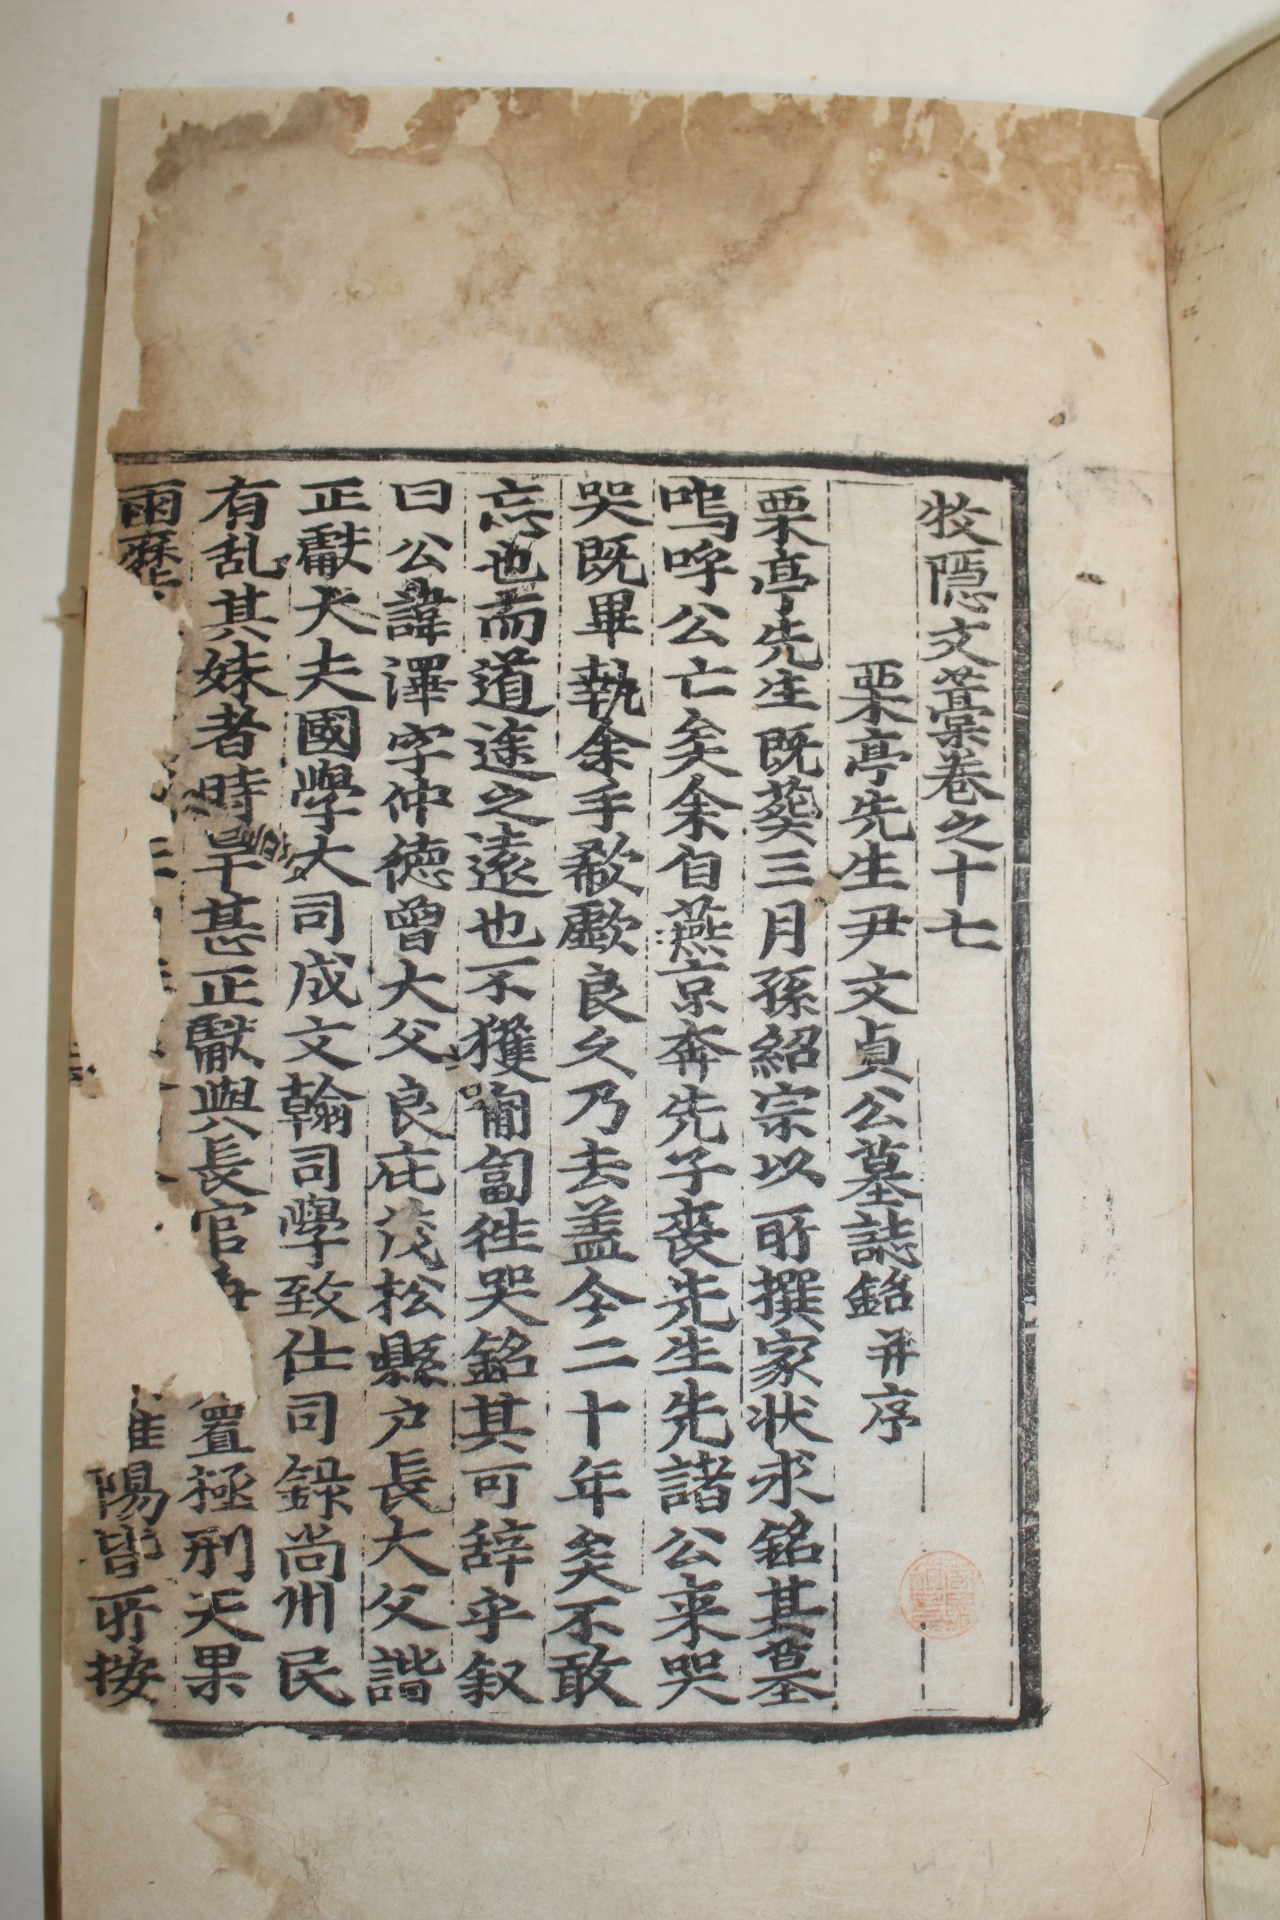 牧隱文藁卷之十七
栗亭先生尹文貞公墓誌銘 并序
栗亭先生既葬三月孫紹宗以所撰家狀求銘其墓
嗚呼公亡矣余自燕京奔先子喪先生先諸公来哭
哭既畢執余手欷歔良久乃去盖今二十年矣不敢
忘也而道途之遠也不獲匍匐徃哭銘其可辞乎叙
曰公諱澤字仲德曾大父良庇茂松縣户長大父諧
正獻大夫國學大司成文翰司學致仕司録尚州民
有乱其妹者時旱甚正獻與長官置極刑天果
雨歷淮陽皆所按